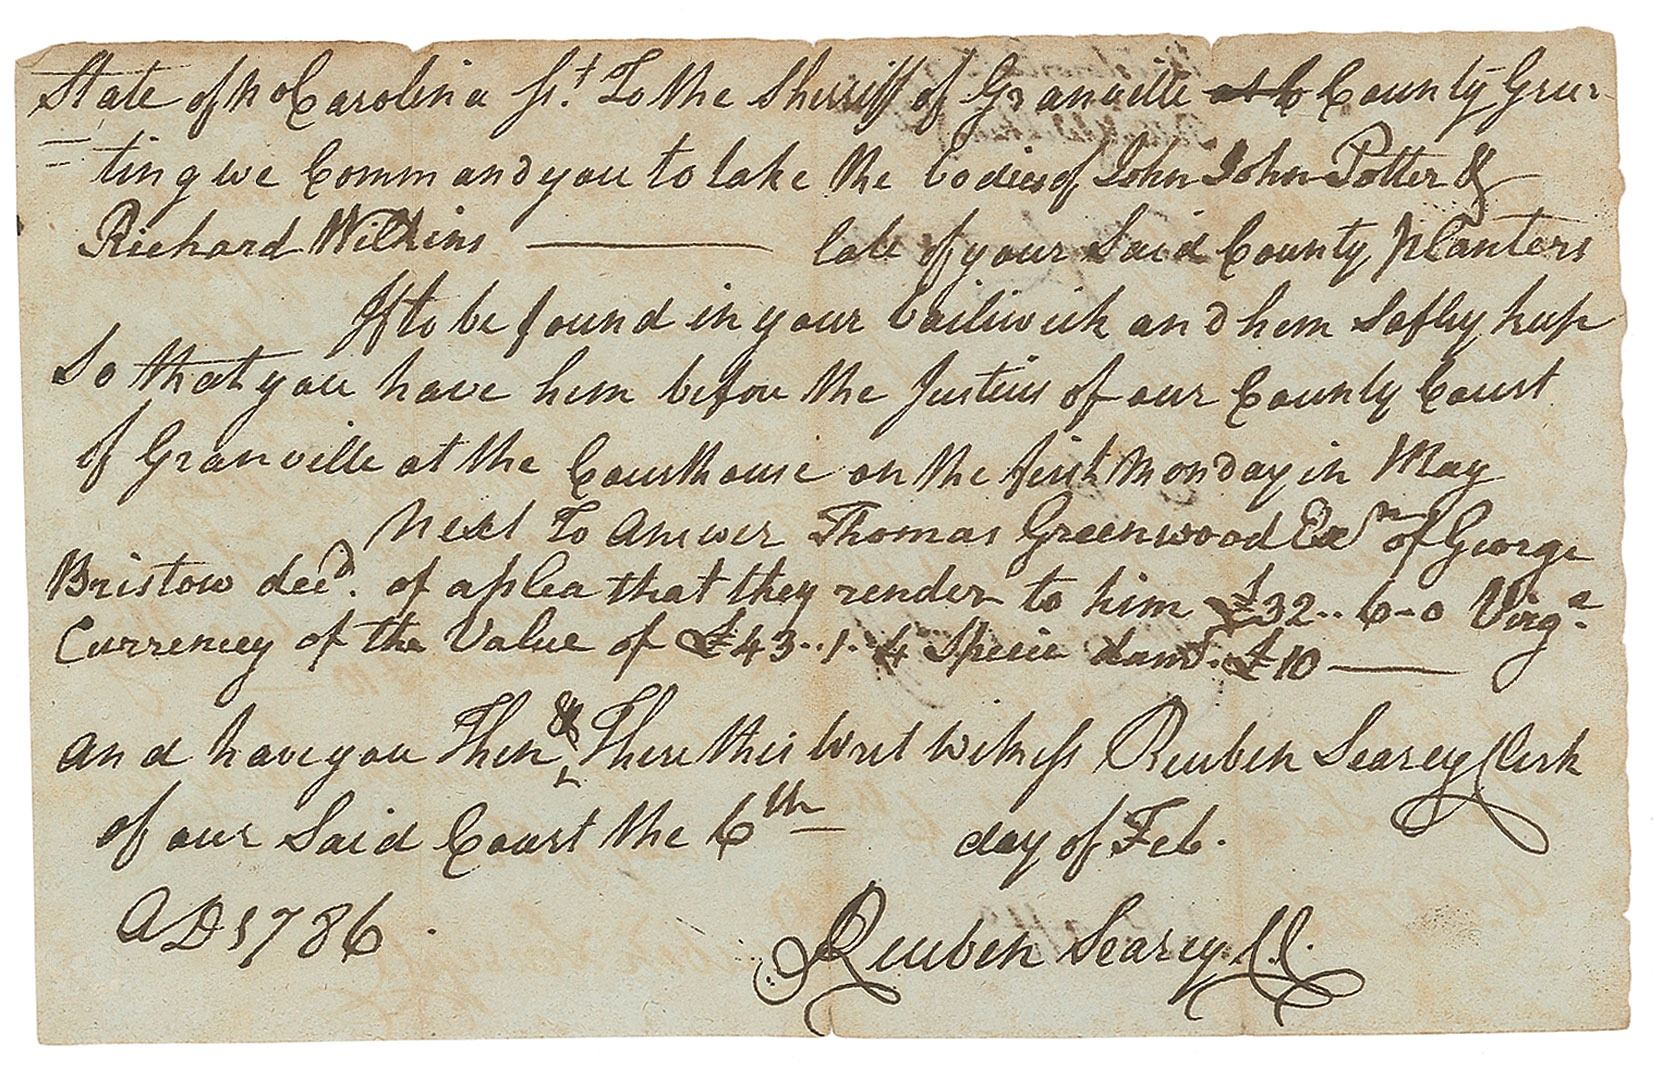 State of No Carolina St. To the Sherriff of Granville County Gree-
ting we Command you to take the bodies of John John Potter &
Richard Wilkins late of your Said County planters
If to be found in your bailiwick and him Safley keep
So that you have him before the Justices of our County Court
of Granville at the Courthouse on the first Monday in May
Next To Answer Thomas Greenwood Exr of George
Bristow decd. of a plea that they render to him £32..6-0 Virga.
Currency of the Value of £43..1.4 Specie damd. £10
and have you Then & There this Writ Witness Reuben Searcy Clerk
of our Said Court the 6th day of Feb.
AD 1786.
Reuben Searcy. CC.